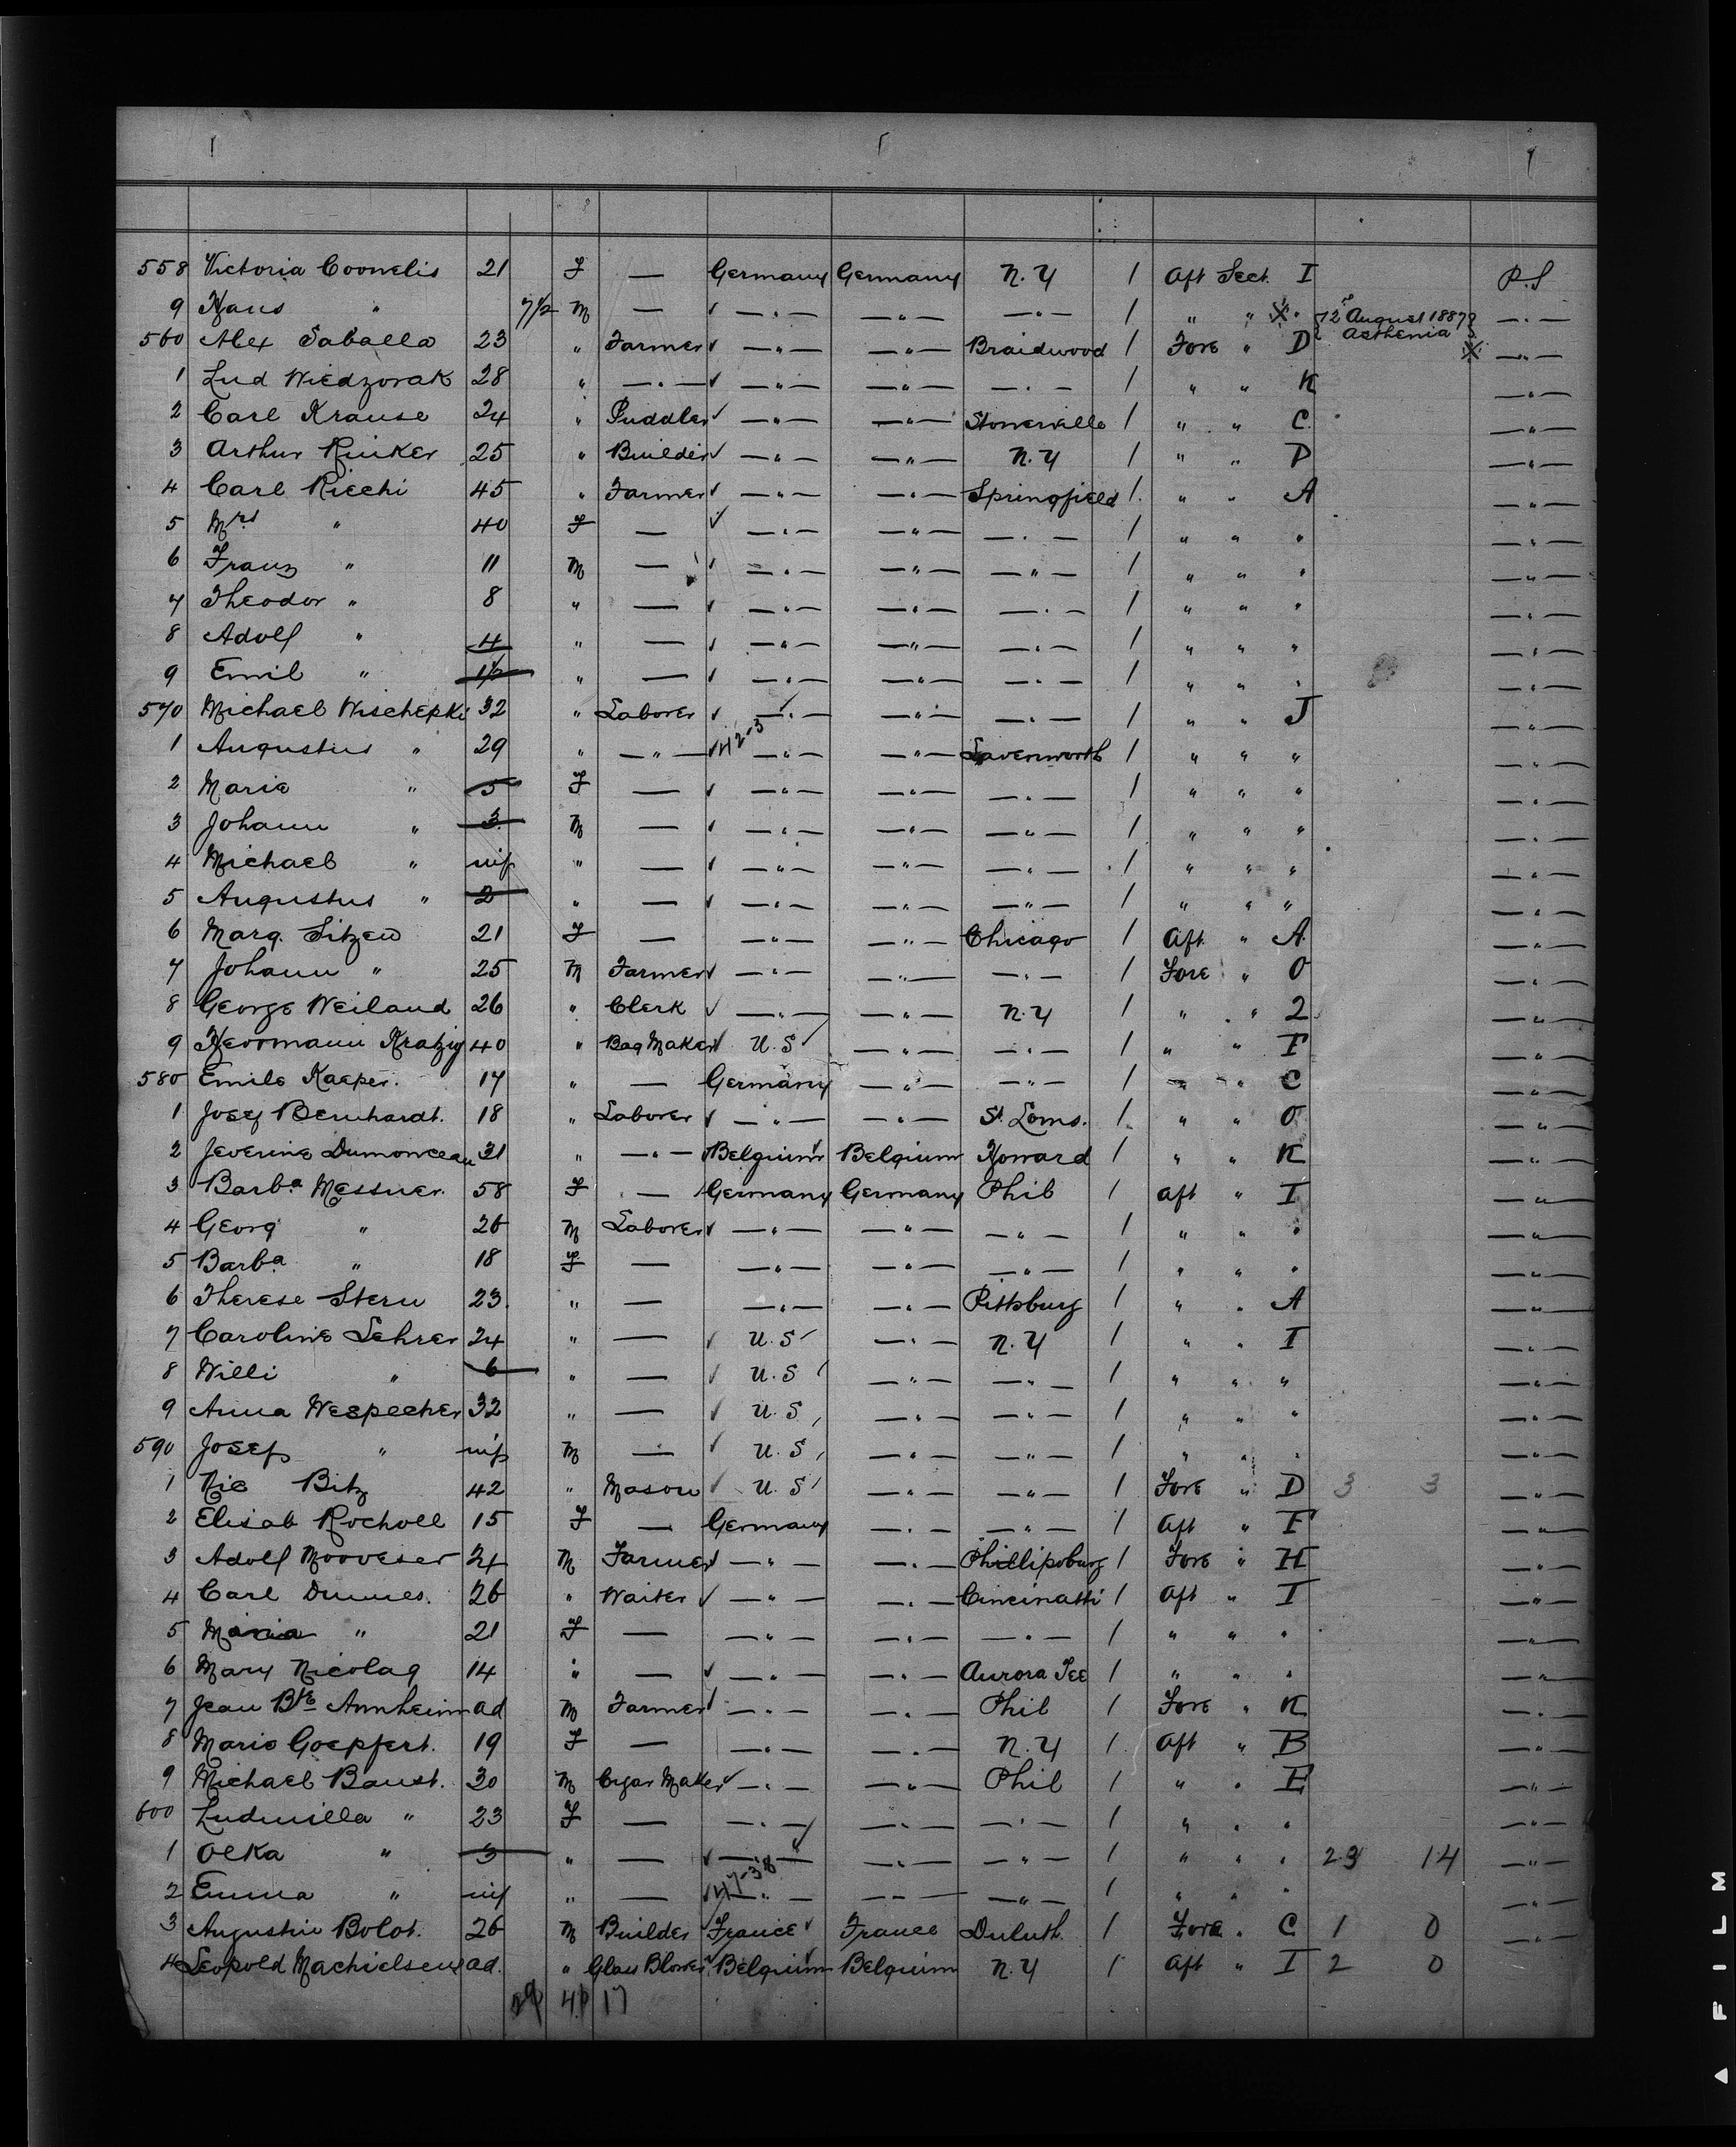 558 Victoria Coonelis 21 F — Germany Germany N.Y 1 Aft Sect. I P.S
9 Hans " 7/12 M — ✓ —"— —"— —"— 1 " " " 12 August 1887 Asthenia —"—
560 Alex Saballa 23 " Farmer ✓ —"— —"— Braidwood 1 Fore " D —"—
1 Lud Wiedzorak 28 " —"— ✓ —"— —"— —"— 1 " " K —"—
2 Carl Krause 24 " Puddler ✓ —"— —"— 1 " " C —"—
3 Arthur Rinker 25 " Builder ✓ —"— —"— N.Y 1 " " D —"—
4 Carl Riechi 45 " Farmer ✓ —"— —"— Springfield 1 " " A —"—
5 Mrs " 40 F — ✓ —"— —"— —"— 1 " " " —"—
6 Franz " 11 M — ✓ —"— —"— —"— 1 " " " —"—
7 Theodor " 8 " — ✓ —"— —"— —"— 1 " " " —"—
8 Adolf " 4 " — ✓ —"— —"— —"— 1 " " " —"—
9 Emil " 1½ " — ✓ —"— —"— —"— 1 " " " —"—
570 Michael Wischepki 32 " Laborer ✓ —"— —"— —"— 1 " " J —"—
1 Augustus " 29 " —"— ✓ 42-3 —"— —"— Lavenworth 1 " " " —"—
2 Marie " 5 F — ✓ —"— —"— —"— 1 " " " —"—
3 Johann " 3 M — ✓ —"— —"— —"— 1 " " " —"—
4 Michael " inf " — ✓ —"— —"— —"— 1 " " " —"—
5 Augustus " 2 " — ✓ —"— —"— —"— 1 " " " —"—
6 Marg. Sitzen 21 F — —"— —"— Chicago 1 Aft " A —"—
7 Johann " 25 M Farmer ✓ —"— —"— —"— 1 Fore " O —"—
8 George Weiland 26 " Clerk ✓ —"— —"— N.Y 1 " " 2 —"—
9 Herrmann Kratzig 40 " Bag Maker ✓ U.S —"— —"— 1 " " F —"—
580 Emile Kaeper. 17 " — Germany —"— —"— 1 " " C —"—
1 Josef Bernhardt. 18 " Laborer ✓ —"— —"— St. Louis. 1 " " O —"—
2 Severine Dumonceau 31 " —"— Belgium Belgium Howard 1 " " K —"—
3 Barba Messner 58 F — Germany Germany Phil 1 Aft " I —"—
4 Georg " 26 M Laborer ✓ —"— —"— —"— 1 " " " —"—
5 Barba " 18 F — —"— —"— —"— 1 " " " —"—
6 Therese Stern 23. " — —"— —"— Pittsburg 1 " " A —"—
7 Caroline Lehrer 24 " — ✓ U.S —"— N.Y 1 " " I —"—
8 Willi " 6 " — ✓ U.S —"— —"— 1 " " " —"—
9 Anna Wespecher 32 " — ✓ U.S —"— —"— 1 " " " —"—
590 Josef " inf M — ✓ U.S —"— —"— 1 " " " —"—
1 Nic Bitz 42 " Mason ✓ U.S —"— —"— 1 Fore " D 3 3 —"—
2 Elisab Rocholl 15 F — Germany —"— —"— 1 Aft " F —"—
3 Adolf 24 M Farmer ✓ —"— —"— Phillipsburg 1 Fore " H —"—
4 Carl Dumes. 26 " Waiter ✓ —"— —"— Cincinatti 1 Aft " I —"—
5 Maria " 21 F — —"— —"— —"— 1 " " " —"—
6 Mary Nicolag 14 " — ✓ —"— —"— Aurora 1 " " " —"—
7 Jean Bte Annheim ad M Farmer ✓ —"— —"— Phil 1 Fore " K —"—
8 Marie Goepfert. 19 F — —"— —"— N.Y 1 Aft " B —"—
9 Michael Baust. 30 M Cigar Maker ✓ —"— —"— Phil 1 " " E —"—
600 Ludmilla " 23 F — —"— —"— —"— 1 " " " —"—
1 Olka " 3 " — ✓ —"— —"— —"— 1 " " " 23 14 —"—
2 Emma " inf " — ✓ 47-38 —"— —"— —"— 1 " " " —"—
3 Augustin Bolot. 26 M Builder France France Duluth. 1 Fore " C 1 0 —"—
4 Leopold Machielsens ad. " Glass Blower Belgium Belgium N.Y 1 Aft " I 2 0
29 41 17
FILM